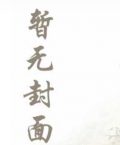 暂无封面